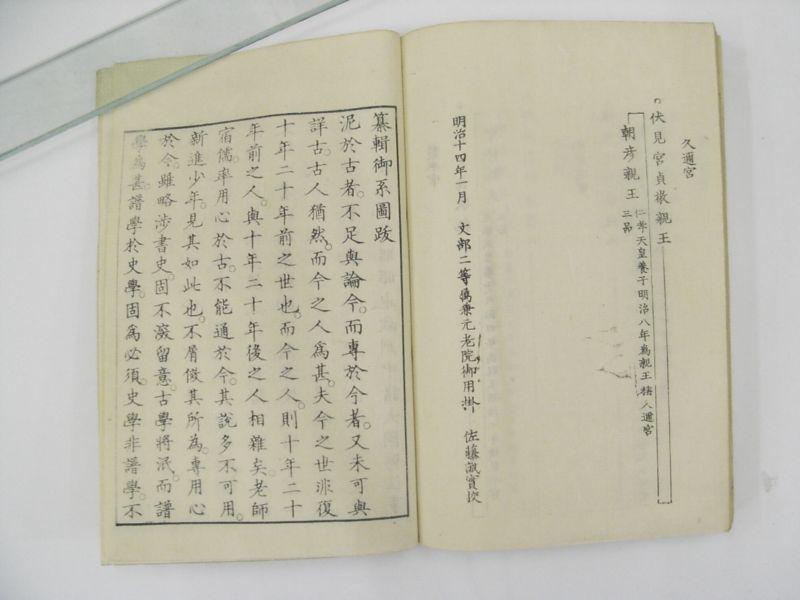 久邇宮
伏見宮貞敬親王
朝彦親王 仁孝天皇養子明治八年為親王称久邇宮
三品
明治十四年一月 文部二等属兼元老院御用掛 佐藤誠実次
纂輯御系圖跋
泥於古者。不足與論今。而專於今者。又未可與
詳古。古人猶然。而今之人為甚。夫今之世非復
十年二十年前之世也。而今之人。則十年二十
年前之人。與十年二十年後之人相雜矣。老師
宿儒。率用心於古。不能通於今。其說多不可用。
新進少年。見其如此也。不屑傚其所為。專用心
於今。雖略涉書史。固不深留意。古學將泯。而譜
學為甚。譜學於史學。固為必須。史學非譜學。不